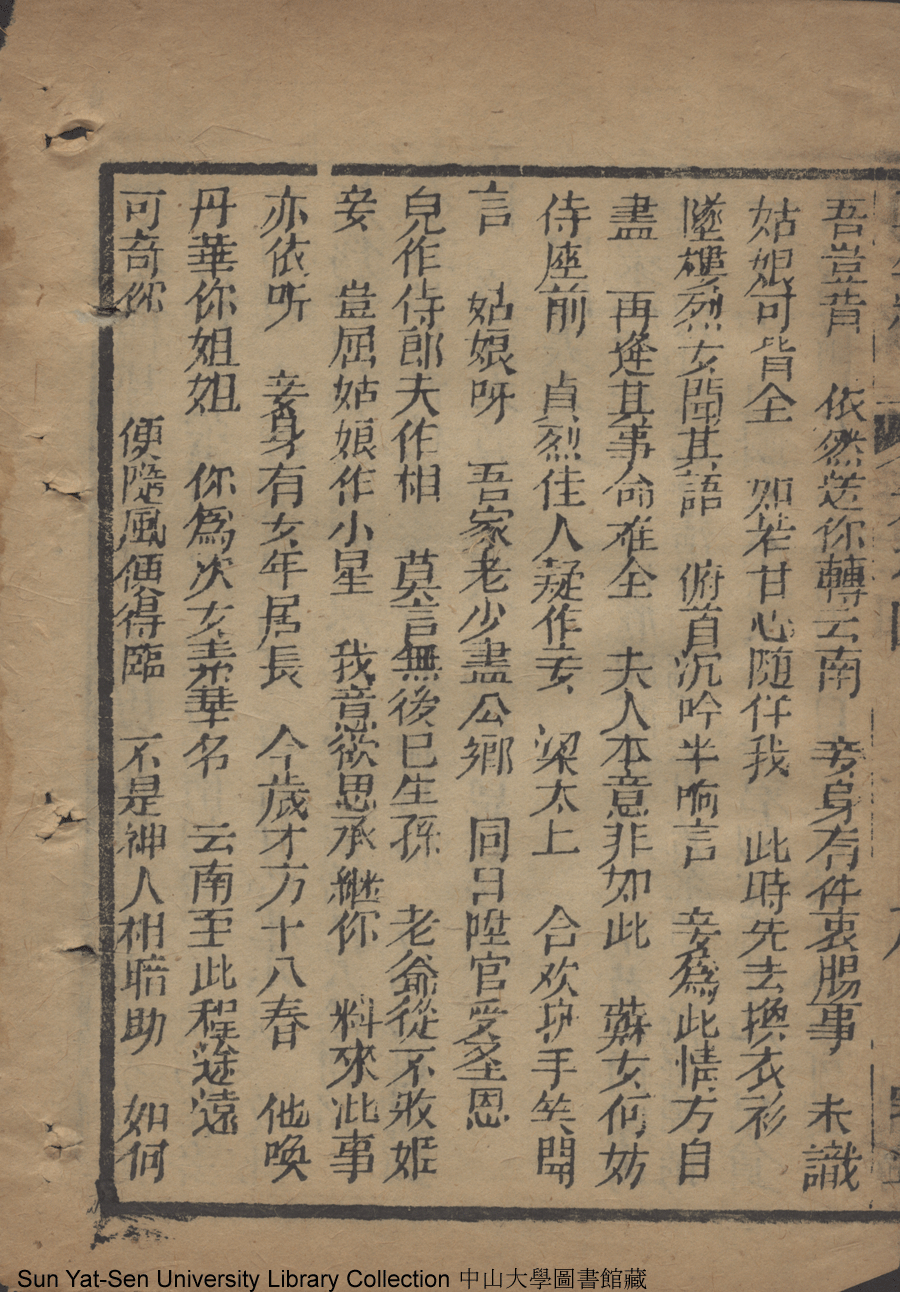 吾豈背　依然送你轉云南　妾身有件衷腸事　未識
姑娘可肯全　如若甘心随仔我　此時先去換衣衫
墜樓烈女聞其語　俯首沉吟半晌言　妾為此情方自
盡　再逢其事命难全　夫人本意非如此　蘇女何妨
侍座前　貞烈佳人疑作妾　梁太上　合欢功手笑開
言　姑娘呀　吾家老少盡公卿　同日陞官受圣恩
皃作侍郎夫作相　莫言無後巳生孫　老爺從不敢姬
妾　豈屈姑娘作小星　我意欲思承継你　料來此事
亦依听　妾身有女年居長　今歲才方十八春　他喚
丹華你姐姐　你為次女素華名　云南至此程途遠
可奇你　便隨風便得臨　不是神人相暗助　如何
Sun Yat-Sen University Library Collection 中山大學圖書館藏